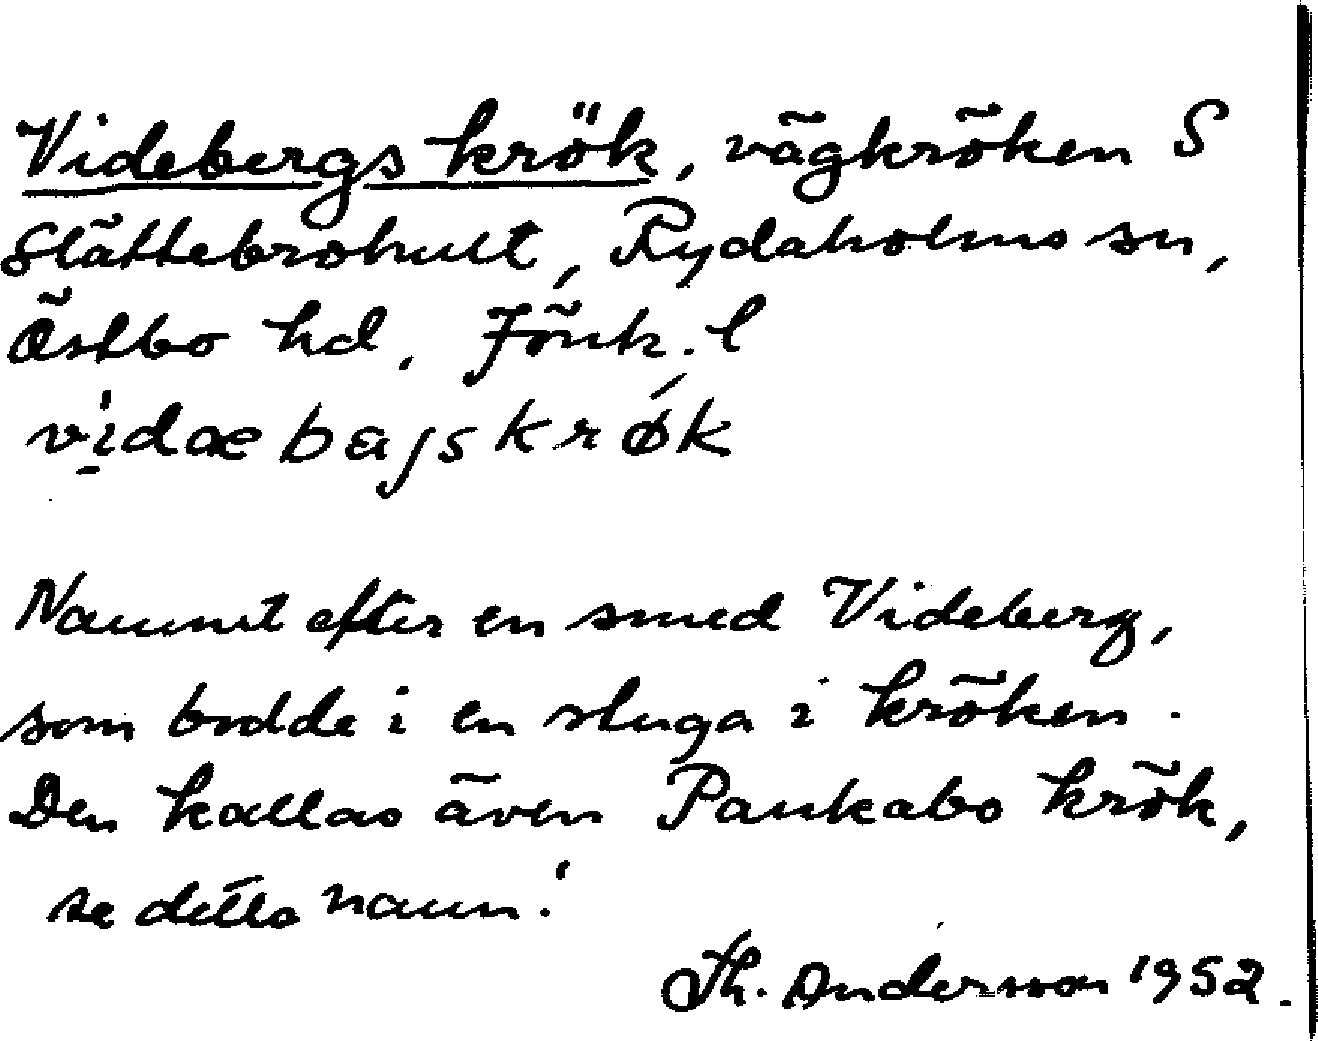 Videbergs krök, vägkröken S
Slättebrohult, Rydaholms sn,
Östbo hd, Jönk. l
vidæbajskrøk
Namnet efter en smed Videberg,
som bodde i en stuga i kröken.
Den kallas även Pankabo krök,
se detta namn!
Th. Andersson 1952.